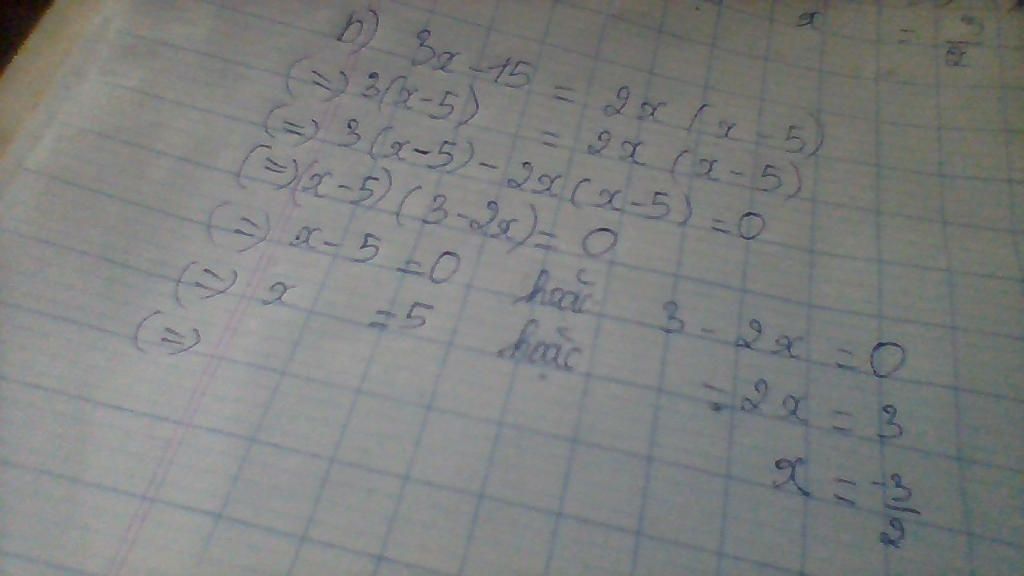 x = 3/2
b) 3x - 15 = 2x (x - 5)
(=) 3(x-5) = 2x (x - 5)
(=) 3(x-5) - 2x (x-5) = 0
(=) (x-5) (3-2x) = 0
(=) x - 5 = 0 hoặc 3 - 2x = 0
(=) x = 5 hoặc -2x = 3
(=) x = -3/2